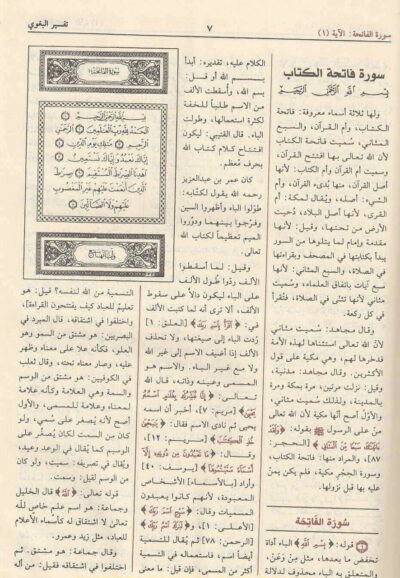 سورة الفاتحة: الآية (١)
٧
تفسير البغوي
سورة فاتحة الكتاب
بِسْمِ اللَّهِ الرَّحْمَنِ الرَّحِيمِ
ولها ثلاثة أسماء معروفة: فاتحة
الكتاب، وأم القرآن، والسبع
المثاني، سميت فاتحة الكتاب
لأن الله تعالى بها افتتح القرآن،
وسميت أم القرآن وأم الكتاب: لأنها
أصل القرآن، منها بُدىء القرآن، وأم
الشيء: أصله، ويُقال لمكة: أم
القرى، لأنها أصل البلاد، دُحيت
الأرض من تحتها، وقيل: لأنها
مقدمة وإمام لما يتلوها من السور
يبدأ بكتابتها في المصحف وبقراءتها
في الصلاة، والسبع المثاني: لأنها
سبع آيات باتفاق العلماء، وسميت
مثاني لأنها تثنى في الصلاة، فتُقرأ
في كل ركعة.
وقال مجاهد: سُميت مثاني
لأن الله تعالى استثناها لهذه الأمة
فدخرها لهم، وهي مكية على قول
الأكثرين. وقال مجاهد: مدنية،
وقيل: نزلت مرتين، مرة بمكة ومرة
بالمدينة، ولذلك سميت مثاني،
والأوّل أصح أنها مكية لأن الله تعالى
منّ على الرسول ﷺ بقوله: ﴿وَلَقَدْ
ءَاتَيْنَاكَ سَبْعًا مِّنَ الْمَثَانِي﴾ [الحجر:
٨٧]، والمراد منها: فاتحة الكتاب،
وسورة الحِجْرِ مكية، فلم يكن يمنّ
عليه بها قبل نزولها.
سُورَةُ الفَاتِحَةِ
قوله: ﴿بِسْمِ اللَّهِ﴾ الباء أداة
تخفض ما بعدها، مثل مِنْ وعَنْ،
والمتعلق به الباء محذوف لدلالة
الكلام عليه، تقديره: أبدأ
بسم الله أو قل:
بسم الله، وأُسقطت الألف
من الاسم طلباً للخفة
لكثرة استعمالها، وطولت
الباء. قال القتيبي: ليكون
افتتاح كلام كتاب الله
بحرف مُعظم.
كان عمر بن عبدالعزيز
رحمه الله يقول لكتّابه:
طوّلوا الباء وأظهروا السين
وفرّجوا بينهما ودوّروا
الميم تعظيماً لكتاب الله
تعالى.
وقيل: لما أسقطوا
الألف ردّوا طُول الألف
على الباء ليكون دالاً على سقوط
الألف، ألا ترى أنه لما كتبت الألف
في: ﴿اقْرَأْ بِاسْمِ رَبِّكَ﴾ [العلق: ١]
رُدت الباء إلى صيغتها، ولا تحذف
الألف إذا أضيف الاسم إلى غير الله
ولا مع غير الباء. والاسم هو
المسمى وعينه وذاته، قال الله
تعالى: ﴿إِنَّا نُبَشِّرُكَ بِغُلَامٍ اسْمُهُ
يَحْيَى﴾ [مريم: ٧]، أخبر أن اسمه
يحيى ثم نادى الاسم فقال: ﴿يَا يَحْيَى
خُذِ الْكِتَابَ﴾ [مريم: ١٢]،
وقال: ﴿مَا تَعْبُدُونَ مِن دُونِهِ إِلَّا
أَسْمَاءً سَمَّيْتُمُوهَا﴾ [يوسف: ٤٠]
وأراد بالأسماء الأشخاص
المعبودة، لأنهم كانوا يعبدون
المسميات وقال: ﴿سَبِّحِ اسْمَ رَبِّكَ﴾
[الأعلى: ١]، و﴿تَبَارَكَ اسْمُ رَبِّكَ﴾
[الرحمن: ٧٨] ثم يُقال للتسمية
أيضاً اسم، فاستعماله في التسمية
أكثر من المسمى، فإن قيل: ما معنى
سُورَةُ الفَاتِحَةِ
بِسْمِ اللَّهِ الرَّحْمَنِ الرَّحِيمِ
الْحَمْدُ لِلَّهِ رَبِّ الْعَالَمِينَ الرَّحْمَنِ
الرَّحِيمِ مَالِكِ يَوْمِ الدِّينِ
إِيَّاكَ نَعْبُدُ وَإِيَّاكَ نَسْتَعِينُ
اهْدِنَا الصِّرَاطَ الْمُسْتَقِيمَ صِرَاطَ
الَّذِينَ أَنْعَمْتَ عَلَيْهِمْ غَيْرِ الْمَغْضُوبِ
عَلَيْهِمْ وَلَا الضَّالِّينَ
التسمية من الله لنفسه؟ قيل: هو
تعليمٌ للعباد كيف يفتتحون القراءة]،
واختلفوا في اشتقاقه، قال المبرد في
البصريين: هو مشتق من السمو وهو
العلو، فكأنه علا على معناه وظهر
عليه، وصار معناه تحته، وقال ثعلب
في الكوفيين: هو مشتق من الوسم
والسمة وهي العلامة وكأنه علامة
لمعناه وعلامة للمسمى، والأول
أصح لأنه يُصغر على سُمي، ولو
كان من السمت لكان يُصغر على
الوسيم كما يُقال في الوعد وعيد،
ويُقال في تصريفه: سميت، ولو كان
من الوسم لقيل: وسمت.
قوله تعالى: ﴿اللَّهِ﴾ قال الخليل
وجماعة: هو اسم علم خاص لله
تعالى لا اشتقاق له كأسماء الأعلام
للعباد، مثل زيد وعمرو.
وقال جماعة: هو مشتق. ثم
اختلفوا في اشتقاقه فقيل: من